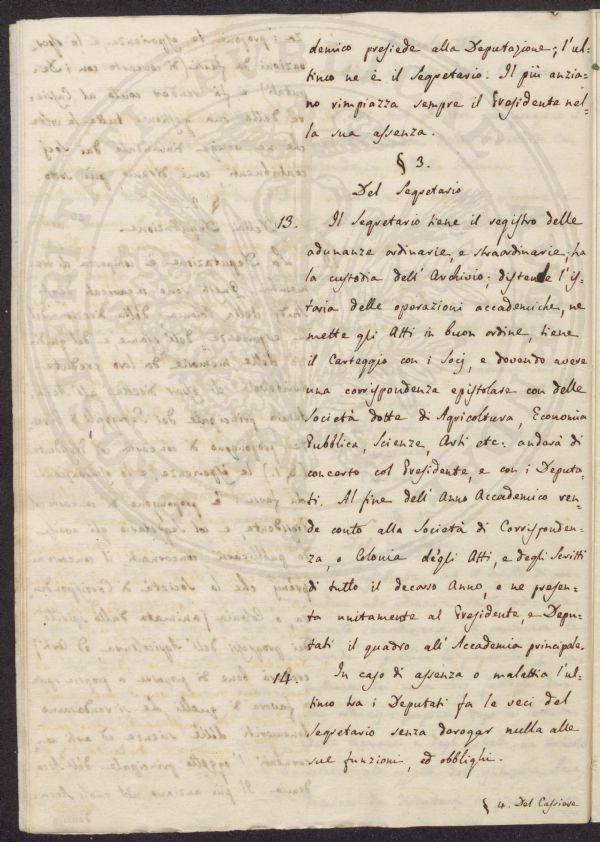 demico presiede alla Deputazione; l'ul=
timo ne è il Segretario. Il più anzia=
no rimpiazza sempre il Presidente nel=
la sua assenza.
§ 3.
Del Segretario
13. Il Segretario tiene il registro delle
adunanze ordinarie, e straordinarie; ha
la custodia dell' Archivio; distende l'is=
toria delle operazioni accademiche, ne
mette gli Atti in buon ordine, tiene
il Carteggio con i Socj, e dovendo avere
una corrispondenza epistolare con delle
Società dotte di Agricoltura, Economia
Pubblica, Scienze, Arti etc: andarà di
concerto col Presidente, e con i Deputa=
ti. Al fine dell' Anno Accademico ren=
de conto alla Società di Corrisponden=
za, o Colonia dègli Atti, e degli Scritti
di tutto il decorso Anno, e ne presen=
ta unitamente al Presidente, e Depu=
tati il quadro all' Accademia principale.
14. In caso di assenza o malattia l'ul=
timo tra i Deputati fa le veci del
Segretario senza derogar nulla alle
sue funzioni, ed obblighi.
§ 4. Del Cassiere